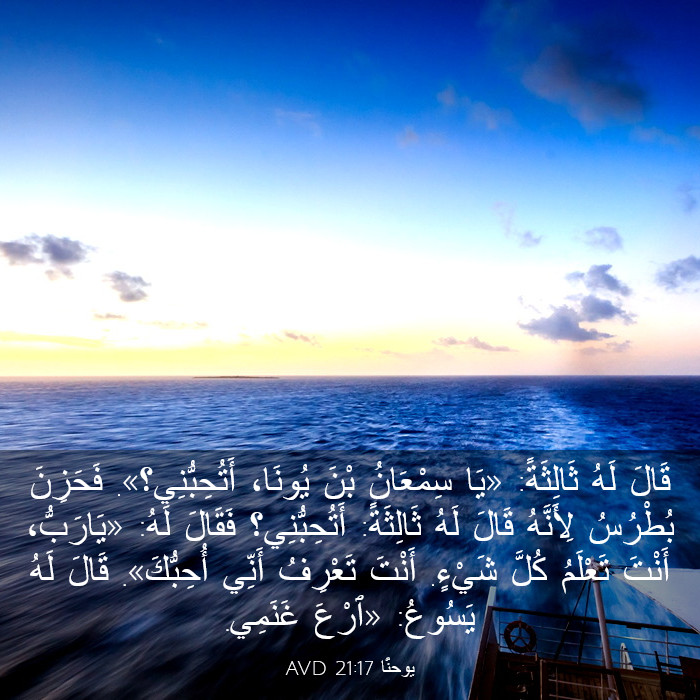 قَالَ لَهُ ثَالِثَةً: «يَا سِمْعَانُ بْنَ يُونَا، أَتُحِبُّنِي؟». فَحَزِنَ
بُطْرُسُ لِأَنَّهُ قَالَ لَهُ ثَالِثَةً: أَتُحِبُّنِي؟ فَقَالَ لَهُ: «يَارَبُّ،
أَنْتَ تَعْلَمُ كُلَّ شَيْءٍ. أَنْتَ تَعْرِفُ أَنِّي أُحِبُّكَ». قَالَ لَهُ
يَسُوعُ: «ٱرْعَ غَنَمِي.
يوحنّا 21:17 AVD